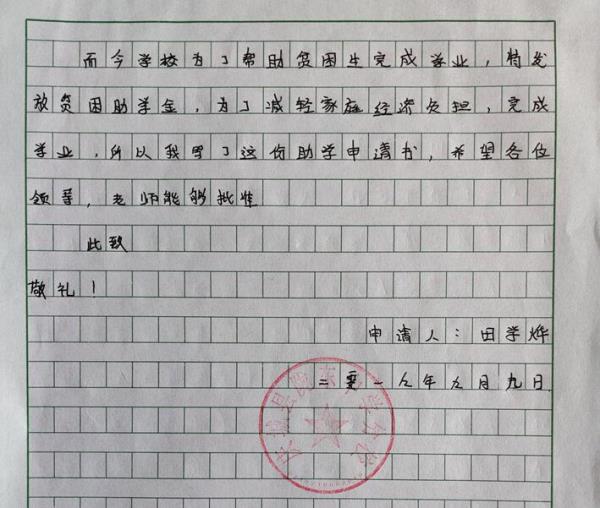 而今学校为了帮助贫困生完成学业，特发
放贫困助学金，为了减轻家庭经济负担，完成
学业，所以我写了这份助学申请书，希望各位
领导，老师能够批准
此致
敬礼！
申请人：田学烨
二零一九年九月九日